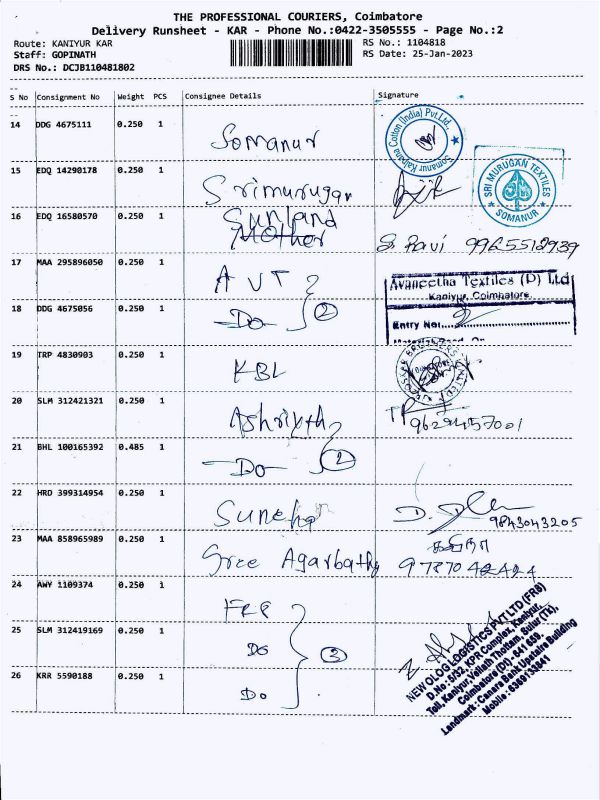 THE PROFESSIONAL COURIERS, Coimbatore
Delivery Runsheet - KAR - Phone No.:0422-3505555 - Page No.:2
Route: KANIYUR KAR
RS No.: 1104818
Staff: GOPINATH
RS Date: 25-Jan-2023
DRS No.: DCJB110481802
S No Consignment No Weight PCS Consignee Details Signature
14 DDG 4675111 0.250 1 Somanur
Somanur Kalpana Cotton (India) Pvt.Ltd.
15 EDQ 14290178 0.250 1 Srimurugan
SRI MURUGAN TEXTILES
SOMANUR
16 EDQ 16580570 0.250 1 Sunland
Mother
S. Ravi 9965512939
17 MAA 295896050 0.250 1 AVT
Avaneetha Textiles (P) Ltd
Kaniyur, Coimbatore.
18 DDG 4675056 0.250 1 -Do- 2
Entry No:
19 TRP 4830903 0.250 1 KBL
20 SLM 312421321 0.250 1 Ashrixth
9629457001
21 BHL 100165392 0.485 1 -Do- 2
22 HRD 399314954 0.250 1 Suneha
9843043205
23 MAA 858965989 0.250 1 Sree Agarbathy 9787042424
24 AWY 1109374 0.250 1 FRR
25 SLM 312419169 0.250 1 Do 3
26 KRR 5590188 0.250 1 Do
NEW OLOG LOGISTICS PVT LTD (FR6)
D.No : 5/32, KPR Complex, Kaniyur,
Toll, Kaniyur, Vellath Thottam, Sulur (Tk),
Coimbatore (Dt) - 641 659.
Landmark : Canara Bank Upstairs Building
Mobile : 6369133841